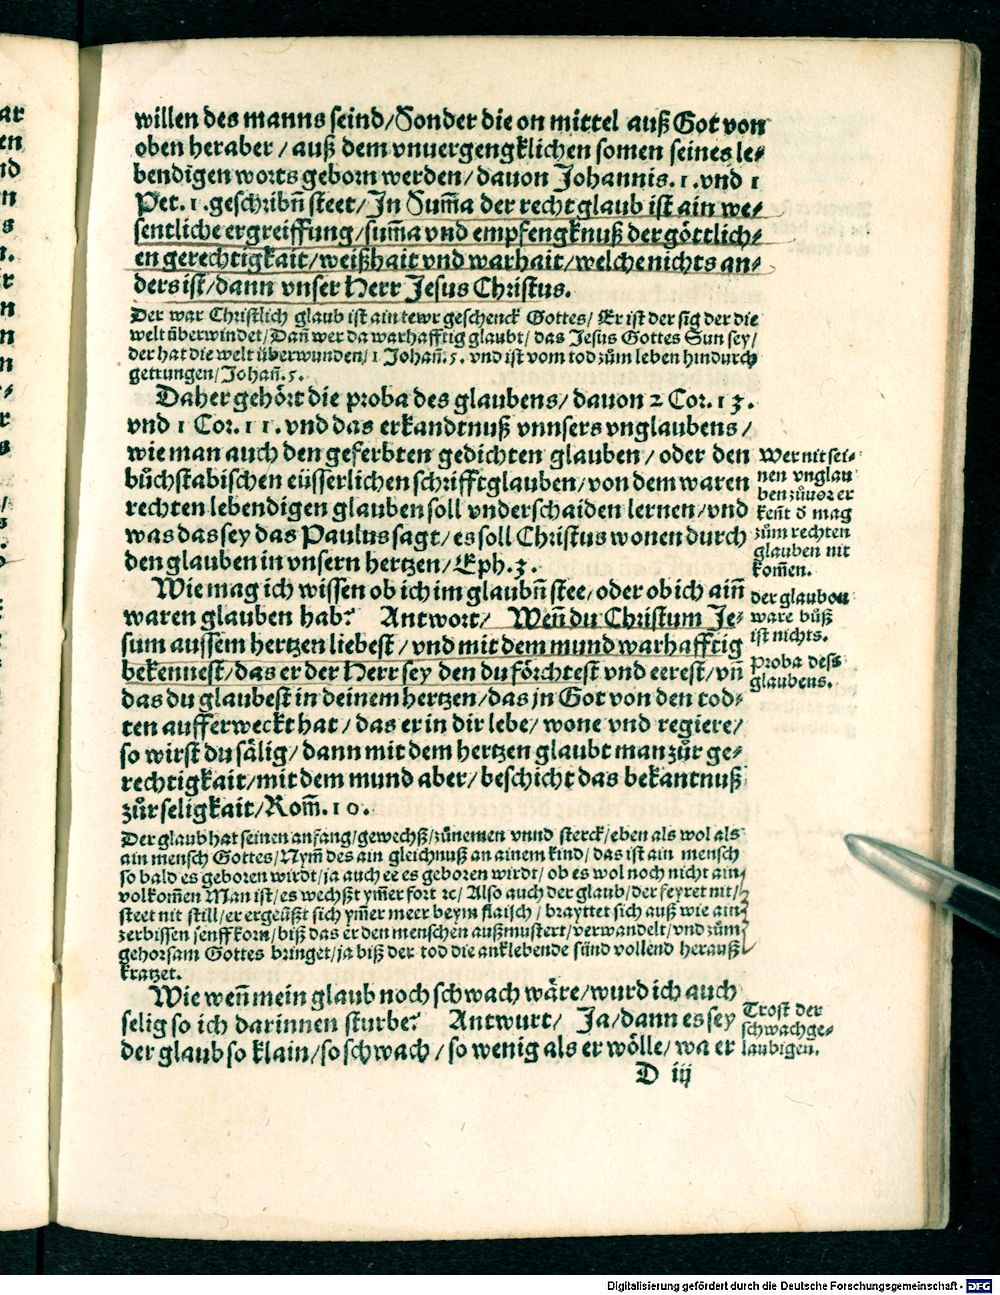 willen des manns seind/Sonder die on mittel auß Got von
oben heraber / auß dem vnuergengklichen somen seines le⸗
bendigen worts geborn werden/ dauon Johannis. 1. vnd 1
Pet. 1. geschribñ steet/ In Sum̃a der recht glaub ist ain we⸗
sentliche ergreiffung/sum̃a vnd empfengknuß der göttlich⸗
en gerechtigkait/weißhait vnd warhait/welche nichts an⸗
ders ist/dann vnser Herr Jesus Christus.
Der war Christlich glaub ist ain tewr geschenck Gottes/ Er ist der sig der die
welt überwindet/ Dañ wer da warhafftig glaubt/ das Jesus Gottes Sun sey/
der hat die welt überwunden/ 1 Johañ. 5. vnd ist vom tod zům leben hindurch
gettungen/ Johañ. 5.
Daher gehört die proba des glaubens/ dauon 2 Cor. 13.
vnd 1 Cor. 11. vnd das erkandtnuß vnnsers vnglaubens /
wie man auch den geferbten gedichten glauben/ oder den
bůchstabischen eüsserlichen schrifftglauben/ von dem waren
rechten lebendigen glauben soll vnderschaiden lernen/vnd
was das sey das Paulus sagt/ es soll Christus wonen durch
den glauben in vnsern hertzen/ Eph. 3.
Wer nit sei⸗
nen vnglau
ben zůuor er
keñt d̕ mag
zům rechten
glauben nit
kom̃en.
Wie mag ich wissen ob ich im glaubñ stee/ oder ob ich aiñ
waren glauben hab? Antwort/ Weñ du Christum Je⸗
sum aussem hertzen liebest / vnd mit dem mund warhafftig
bekennest/ das er der Herr sey den du förchtest vnd eerest/ vñ
das du glaubest in deinem hertzen/ das jn Got von den tod⸗
ten aufferweckt hat / das er in dir lebe/ wone vnd regiere/
so wirst du sälig/ dann mit dem hertzen glaubt man zůr ge⸗
rechtigkait/mit dem mund aber/ beschicht das bekantnuß
zůr seligkait/ Rom̃. 10.
der glaub on
ware bůß
ist nichts.
Proba dess
glaubens.
Der glaub hat seinen anfang/ gewechß/ zůnemen vnnd sterck/ eben als wol als
ain mensch Gottes/ Nym̃ des ain gleichnuß an ainem kind/ das ist ain mensch
so bald es geboren wirdt/ ja auch ee es geboren wirdt/ ob es wol noch nicht ain
volkom̃en Man ist/ es wechßt ym̃er fort ꝛc/ Also auch der glaub/ der feyret nit/
steet nit still/ er ergeüßt sich ym̃er meer beym flaisch/ brayttet sich auß wie ain
zerbissen senffkorn/ biß das er den menschen außmustert/ verwandelt/ vnd zům
gehorsam Gottes bringet/ ja biß der tod die anklebende sünd vollend herauß
kratzet.
Wie weñ mein glaub noch schwach wäre/wurd ich auch
selig so ich darinnen sturbe? Antwurt/ Ja/ dann es sey
der glaub so klain/so schwach / so wenig als er wölle/ wa er
Trost der
schwachge⸗
laubigen.
D iij
Digitalisierung gefördert durch die Deutsche Forschungsgemeinschaft - DFG